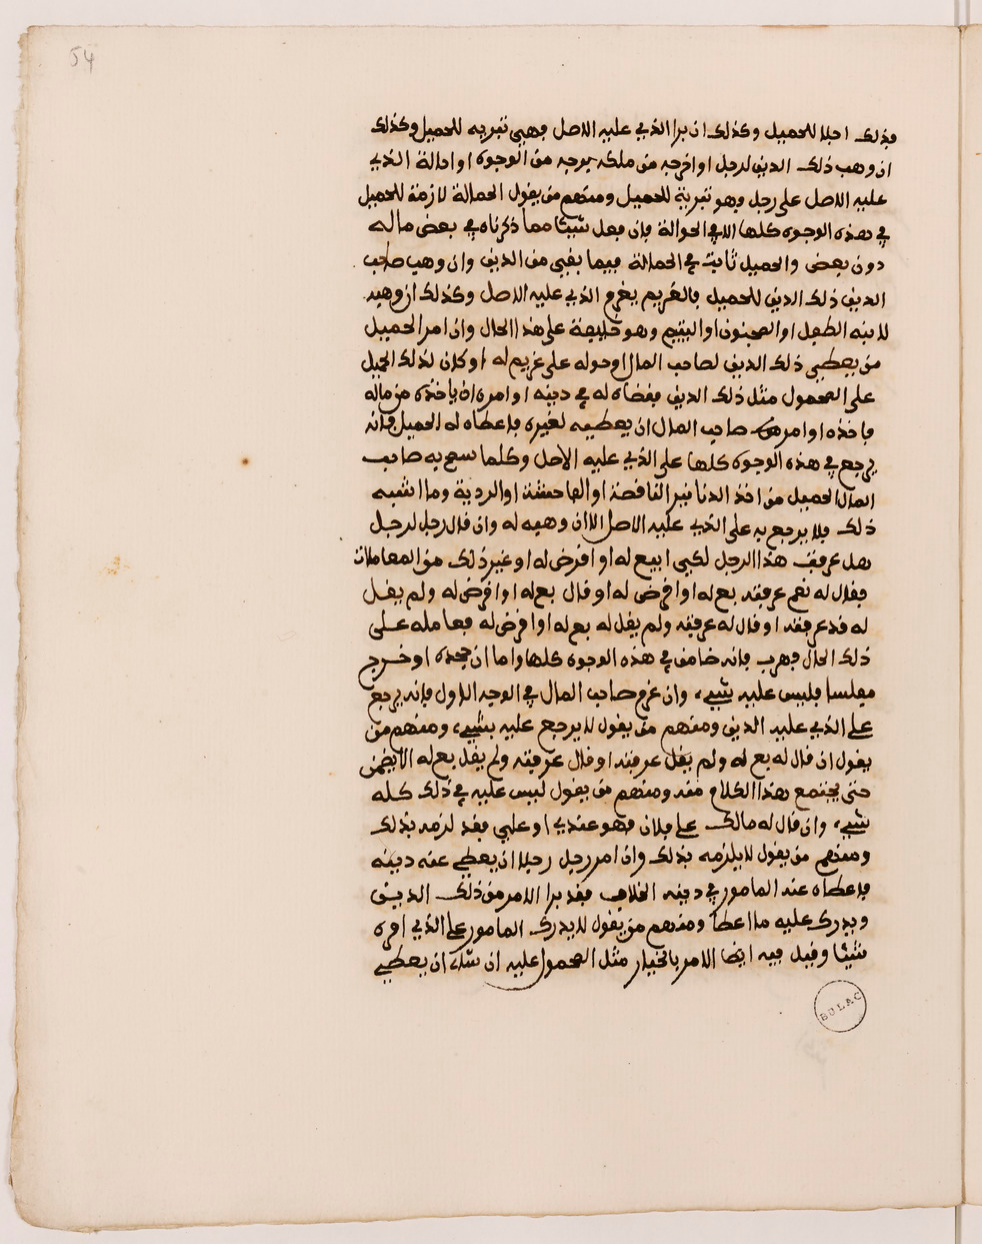 54
فذلك اجلا للحميل وكذلك ان برا الذي عليه الاصل فهي تبرية للحميل وكذلك
ان وهب ذلك الدين لرجل او اخرجه من ملكه بوجه من الوجوه او احالة الذي
عليه الاصل على رجل وهو تبرية للحميل ومنهم من يقول الحمالة لازمة للحميل
في هذه الوجوه كلها الا في الحوالة فان فعل شيئا مما ذكرناه في بعض ماله
دون بعض والحميل ثابت في الحمالة فيما بقي من الدين وان وهب صاحب
الدين ذلك الدين للحميل فالغريم يغرم الذي عليه الاصل وكذلك ان وهبه
لابنه الطفل او المجنون او اليتيم وهو خليفة على هذا الحال وان امر الحميل
من يعطي ذلك الدين لصاحب المال او حوله على غريم له او كان لذلك الحميل
على المحمول مثل ذلك الدين فقضاه له في دينه او امره ان ياخذه من ماله
فاخذه او امره صاحب المال ان يعطيه لغيره فاعطاه له الحميل فانه
يرجع في هذه الوجوه كلها على الذي عليه الاصل وكلما سمح به صاحب
المال الحميل من اخذ الدنانير الناقصة او الفاحشة او الردية وما اشبه
ذلك فلا يرجع به على الذي عليه الاصل الا ان وهبه له وان قال رجل لرجل
هل عرفت هذا الرجل لكي ابيع له او اقرض له او غير ذلك من المعاملات
فقال له نعم عرفته بع له او اقرض له او قال بع له او اقرض له ولم يقل
له قد عرفته او قال له عرفته ولم يقل له بع له او اقرض له فعامله على
ذلك الحال فهرب فانه ضامن في هذه الوجوه كلها واما ان جحده او خرج
مفلسا فليس عليه شيء، وان غرم صاحب المال في الوجه الاول فانه يرجع
على الذي عليه الدين ومنهم من يقول لا يرجع عليه بشيء، ومنهم من
يقول ان قال له بع له ولم يقل عرفته او قال عرفته ولم يقل بع له الا يضمن
حتى يجتمع هذا الكلام منه ومنهم من يقول ليس عليه في ذلك كله
شيء، وان قال له مالك على فلان فهو عندي او علي فقد لزمه بذلك
ومنهم من يقول لا يلزمه بذلك وان امر رجل رجلا ان يعطي عنه دينه
فاعطاه عنه المامور في دينه الخلاف فقد برا الامر من ذلك الدين
ويدرك عليه ما اعطا ومنهم من يقول لا يدرك المامور على الذي امره
شيئا وقيل فيه ايضا الامر بالخيار مثل المحمول عليه ان شاء ان يعطي
BULAC